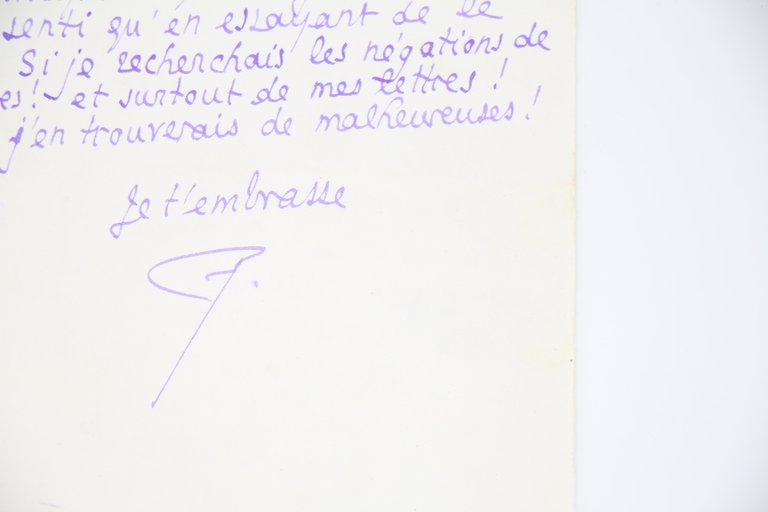 senti qu'en essayant de le
Si je recherchais les négations de
es! - et surtout de mes lettres !
j'en trouverais de malheureuses !
Je t'embrasse